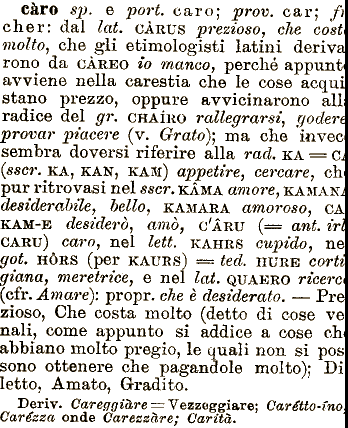 càro sp. e port. caro; prov. car; fr
cher: dal lat. CÀRUS prezioso, che cost
molto, che gli etimologisti latini deriva
rono da CÀREO io manco, perché appunt
avviene nella carestia che le cose acqui
stano prezzo, oppure avvicinarono all
radice del gr. CHAÍRO rallegrarsi, godere
provar piacere (v. Grato); ma che invec
sembra doversi riferire alla rad. KA = C
(sscr. KA, KAN, KAM) appetire, cercare, ch
pur ritrovasi nel sscr. KÂMA amore, KAMAN
desiderabile, bello, KAMARA amoroso, CA
KAM-E desiderò, amò, C'ÂRU (= ant. irl
CARU) caro, nel lett. KAHRS cupido, ne
got. HÔRS (per KAURS) = ted. HURE corti
giana, meretrice, e nel lat. QUAERO ricerc
(cfr. Amare): propr. che è desiderato. — Pre
zioso, Che costa molto (detto di cose ve
nali, come appunto si addice a cose ch
abbiano molto pregio, le quali non si pos
sono ottenere che pagandole molto); Di
letto, Amato, Gradito.
Deriv. Careggiàre = Vezzeggiare; Carétto-íno
Carézza onde Carezzàre; Carità.